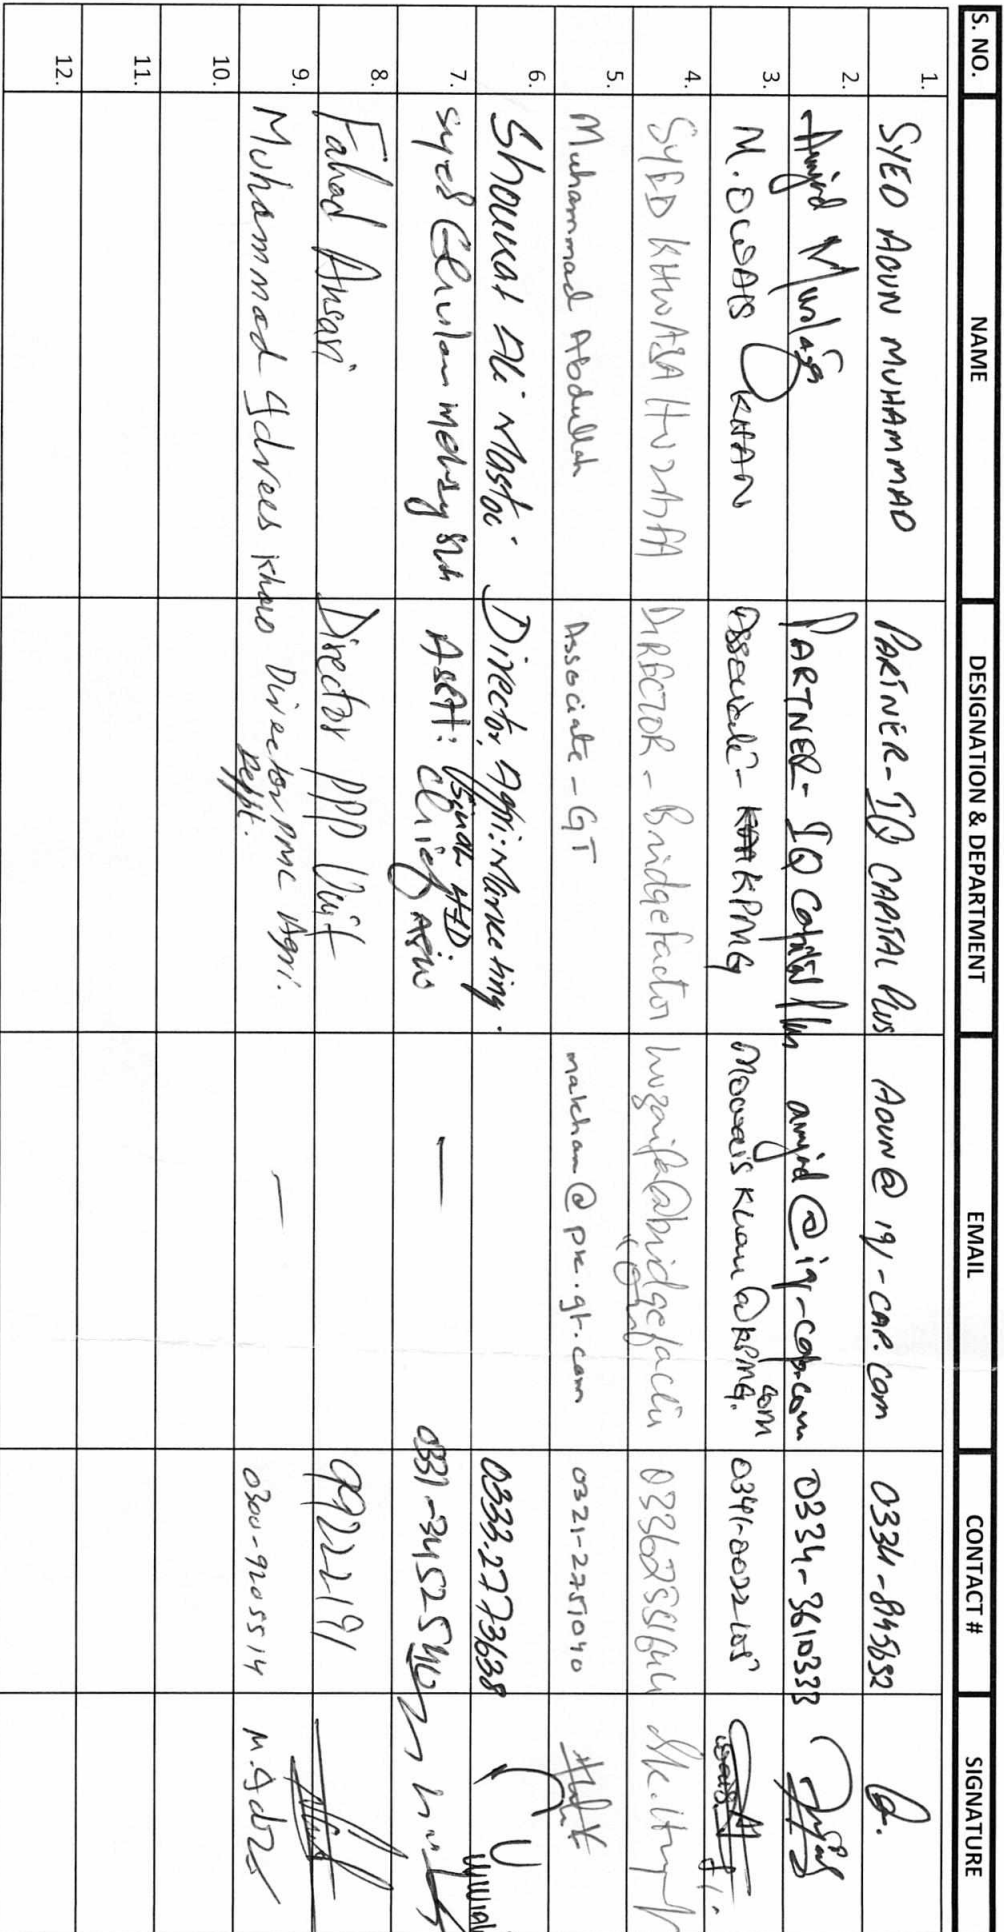 S. NO. NAME DESIGNATION & DEPARTMENT EMAIL CONTACT # SIGNATURE
1. SYED AOUN MUHAMMAD PARTNER - IQ CAPITAL PLUS AOUN@iq-CAP.COM 0334-8145652
2. Amjad PARTNER - IQ Capital Plus amjad@iq-cap.com 0334-3610333
3. M. OWAIS KHAN Associate - KPMG Mowaiskhan@KPMG.com
4. SYED KHWAJA HUZAIFA DIRECTOR - Bridgefactor
5. Muhammad Abdullah Associate - GT makhan@pk.gt.com 0321-2751040
6. Shoukat Ali Mastoi Director, Agri: Marketing. 0333-2773638
7. Syed Ghulam
8. Fahad Ansari Director PPP Unit 9922191
9. Muhammad Idrees Khan Director PMC Agri. Deptt. — 0300-9205514 M. Idrees
10.
11.
12.